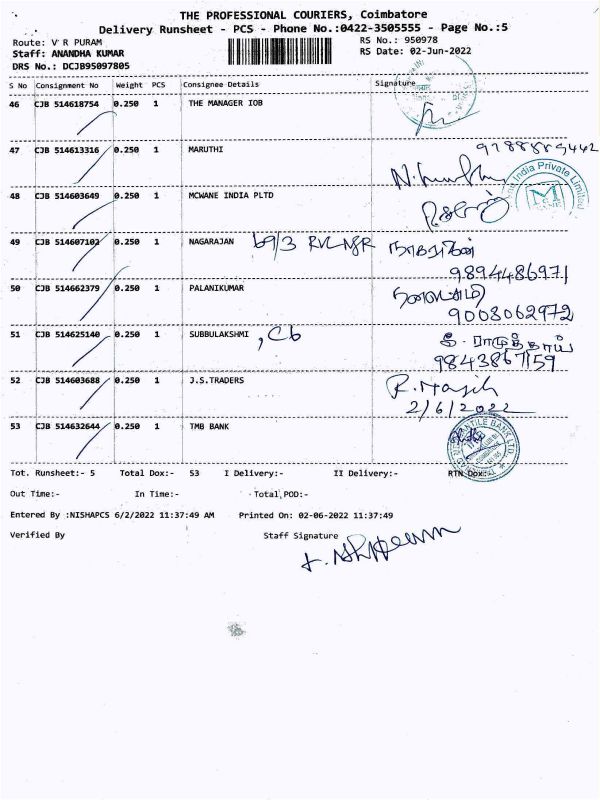 THE PROFESSIONAL COURIERS, Coimbatore
Delivery Runsheet - PCS - Phone No.:0422-3505555 - Page No.:5
Route: V R PURAM
RS No.: 950978
Staff: ANANDHA KUMAR
RS Date: 02-Jun-2022
DRS No.: DCJB95097805
S No Consignment No Weight PCS Consignee Details Signature
46 CJB 514618754 0.250 1 THE MANAGER IOB
47 CJB 514613316 0.250 1 MARUTHI
48 CJB 514603649 0.250 1 MCWANE INDIA PLTD
India Private Limited
M
49 CJB 514607102 0.250 1 NAGARAJAN
9894486971
50 CJB 514662379 0.250 1 PALANIKUMAR
9003062972
51 CJB 514625140 0.250 1 SUBBULAKSHMI , Cb
9843867159
52 CJB 514603688 0.250 1 J.S.TRADERS
2/6/2022
53 CJB 514632644 0.250 1 TMB BANK
MERCANTILE BANK LTD
Tot. Runsheet:- 5 Total Dox:- 53 I Delivery:- II Delivery:- RTN Dox:-
Out Time:- In Time:- Total POD:-
Entered By :NISHAPCS 6/2/2022 11:37:49 AM Printed On: 02-06-2022 11:37:49
Verified By Staff Signature